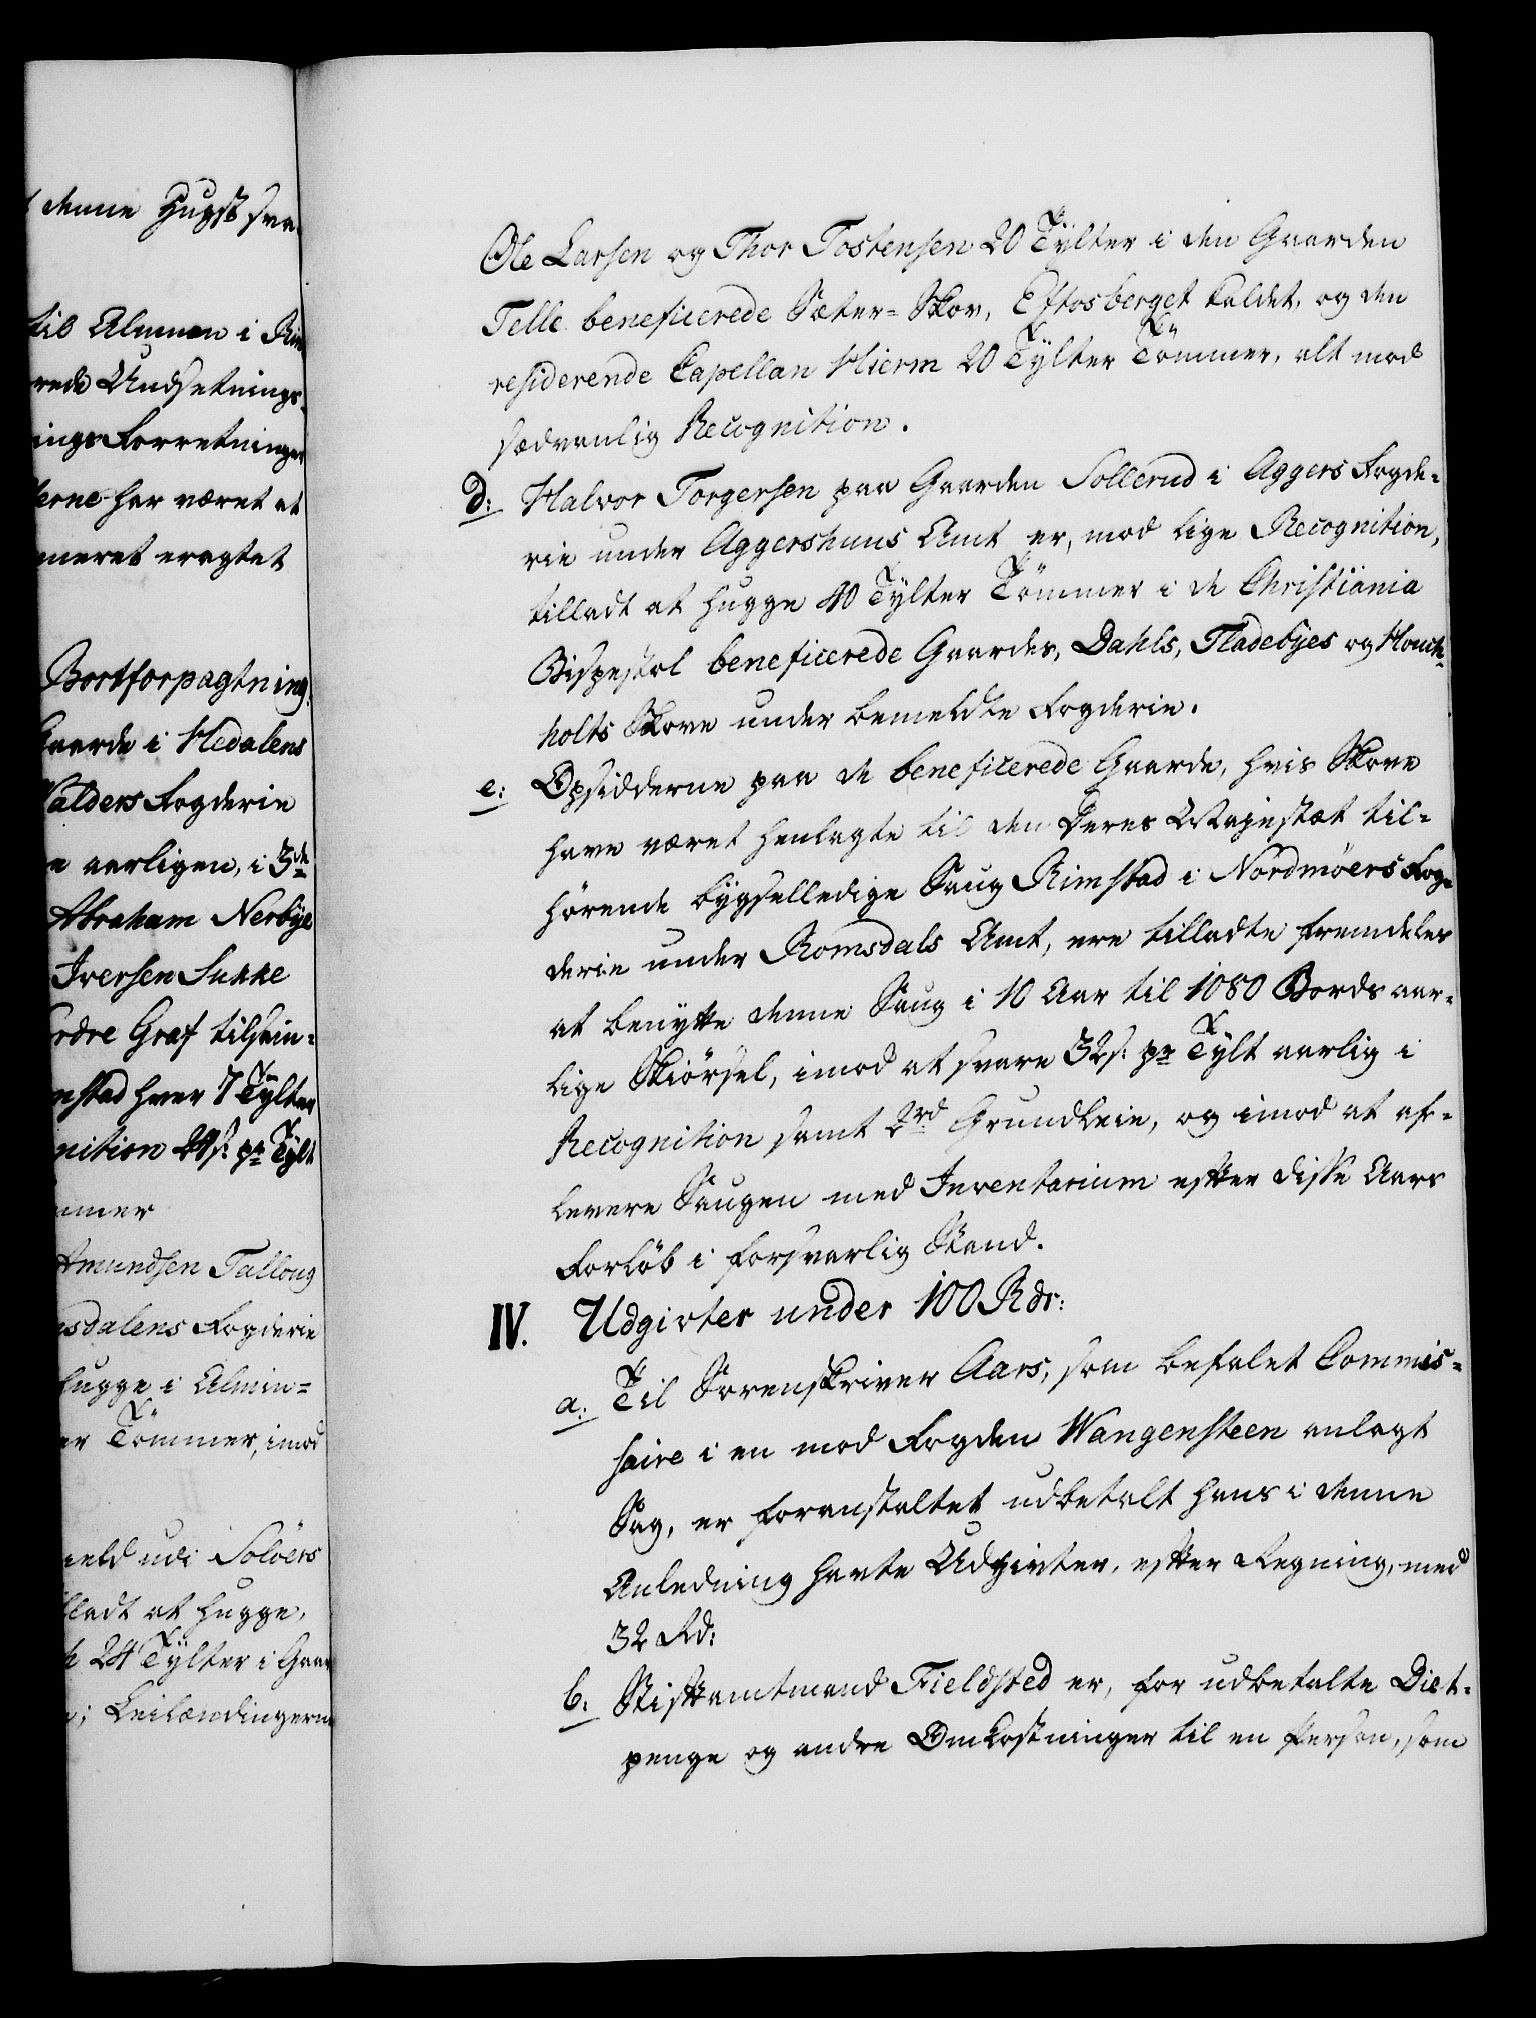 denne Hugst sva-
til Almuen i Rin
rede Udsetnings-
ings Forretninger
erne har været at
meret eragtet
Bortforpagtning
Gaarde i Hedalens
Valders Fogderie
e aarligen, i 3de
Abraham Nerbye
Iversen Sukke
ordre Graf tilsvin-
nstad hver 7 Tylter
nition 24 s: pr Tylt
mmer
Amundsen Talloug
sdalens Fogderie
hugge i Almin-
er Tömmer, imod
ield udi Solöers
lladt at hugge,
24 Tylter i Gaar
; Leilændingerne
Ole Larsen og Thor Tostensen 20 Tylter i den Gaarden
Telle beneficerede Sæter-Skov, Eftosberget kaldet, og den
residerende Capellan Hierm 20 Tylter Tömmer, alt mod
sædvanlig Recognition.
d: Halvor Torgersen paa Gaarden Sollerud i Aggers Fogde-
rie under Aggershuus Amt er, mod lige Recognition,
tilladt at hugge 40 Tylter Tömmer i de Christiania
Bispestol beneficerede Gaardes, Dahls, Fladebyes og Houk-
holts Skove under bemeldte Fogderie.
e: Opsidderne paa de beneficerede Gaarde, hvis Skove
have været henlagte til den Deres Majestæt til-
hörende bygselledige Saug Rimstad i Nordmöers Fog-
derie under Romsdals Amt, ere tilladte fremdeles
at benytte denne Saug i 10 Aar til 1080 Bords aar-
lige Skiörsel, imod at svare 32 s: pr Tylt aarlig i
Recognition samt 2 rd Grundleie, og imod at af-
levere Saugen med Inventarium efter disse Aars
Forlöb i forsvarlig Stand.
IV. Udgivter under 100 Rdr:
a: Til Sorenskriver Aars, som befalet Commis-
saire i en mod Fogden Wangensteen anlagt
Sag, er foranstaltet udbetalt hans i denne
Anledning havte Udgivter, efter Regning, med
32 Rd:
b: Stiftamtmand Fieldsted er, for udbetalte Diet-
penge og andre Omkostninger til en Person, som